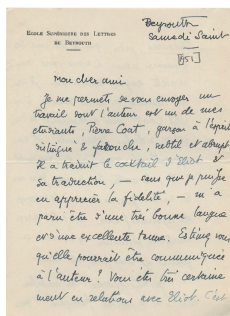 Ecole Supérieure des Lettres
de Beyrouth
Beyrouth
Samedi Saint
[951]
mon cher ami
Je me permets de vous envoyer un
travail dont l'auteur est un de mes
étudiants, Pierre Coat, garçon à l'esprit
distingué & farouche, subtil et abrupt
Il a traduit le cocktail d'Eliot et
sa traduction, – sans que je puisse
en apprécier la fidélité, – m'a
paru être d'une très bonne langue
et d'une excellente tenue. Estimez vous
qu'elle pourrait être communiquée
à l'auteur? Vous êtes très certaine
ment en relations avec Eliot. C'est